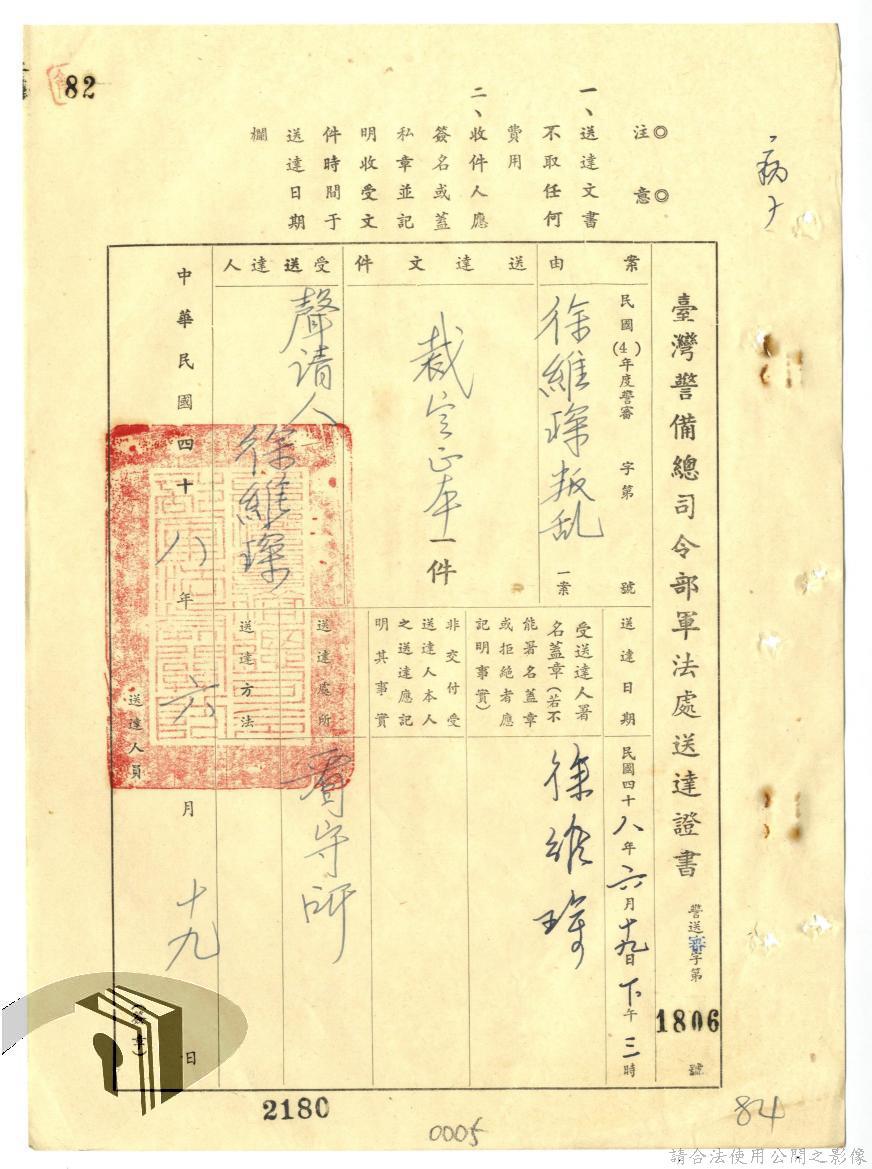 82
◎注意◎
一、送達文書
不取任何
費用
二、收件人應
簽名或蓋
私章並記
明收受文
件時間于
送達日期
欄
臺灣警備總司令部軍法處送達證書
警送審字第
1806
號
案由
民國(4)年度警審字第號
徐維琛叛乱
一案
送達文件
裁定正本一件
受送達人
聲請人
徐維琛
送達日期
民國四十八年六月十九日下午三時
受送達人署
名蓋章(若不
能署名蓋章
或拒絕者應
記明事實)
徐維琛
非交付受
送達人本人
之送達應記
明其事實
送達處所
看守所
送達方法
中華民國四十八年六月十九日
送達人員
(簽章)
2180
0005
84
請合法使用公開之影像